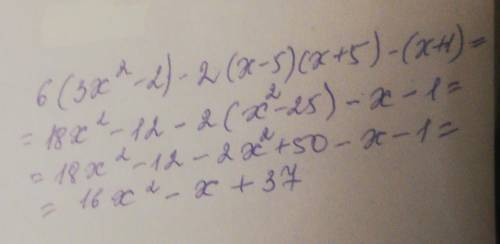 6(3x²-2)-2(x-5)(x+5)-(x+1)=
=18x²-12-2(x²-25)-x-1=
=18x²-12-2x²+50-x-1=
=16x²-x+37